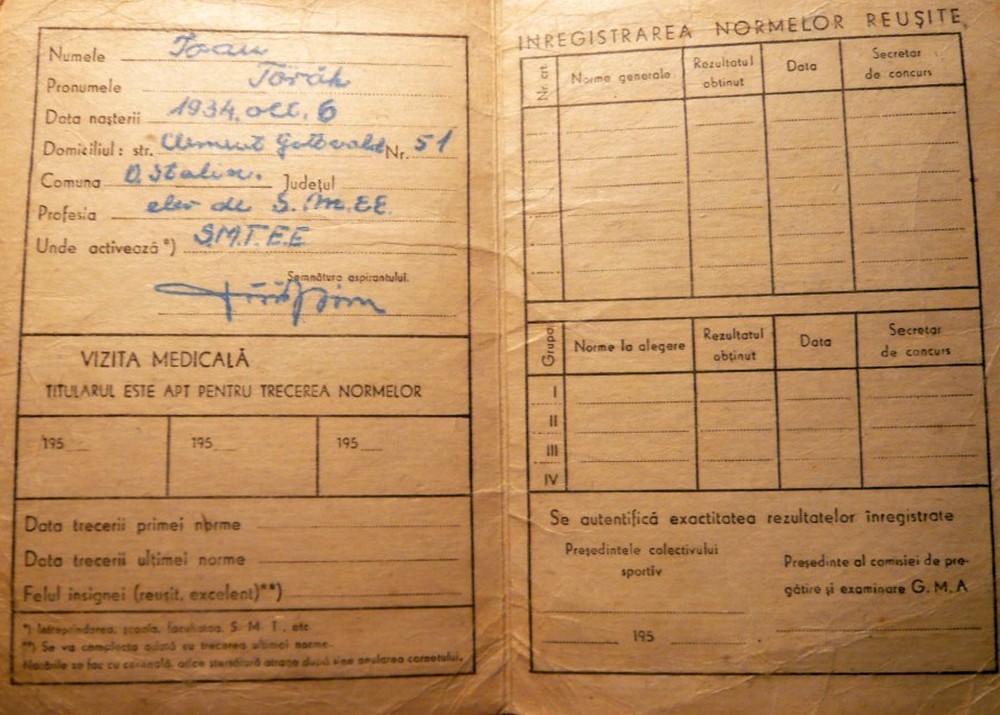 Numele Ioan
Pronumele Török
Data nașterii 1934. oct. 6
Domiciliul: str. Clement Gotwald Nr. 51
Comuna O. Stalin. Județul
Profesia elev de S.M.E.E.
Unde activează *) S.M.T.E.E.
Semnătura aspirantului.
VIZITA MEDICALĂ
TITULARUL ESTE APT PENTRU TRECEREA NORMELOR
195 195 195
Data trecerii primei norme
Data trecerii ultimei norme
Felul insignei (reușit, excelent)**)
*) Intreprinderea, școala, facultatea, S. M. T., etc
**) Se va complecta odată cu trecerea ultimei norme.
Notările se fac cu cerneală, orice ștersătură atrage după sine anularea carnetului.
INREGISTRAREA NORMELOR REUȘITE
Nr. crt. Norme generale Rezultatul obtinut Data Secretar de concurs
Grupa Norme la alegere Rezultatul obținut Data Secretar de concurs
I
II
III
IV
Se autentifică exactitatea rezultatelor înregistrate
Președintele colectivului
sportiv
Președinte al comisiei de pre-
gătire și examinare G. M. A
195